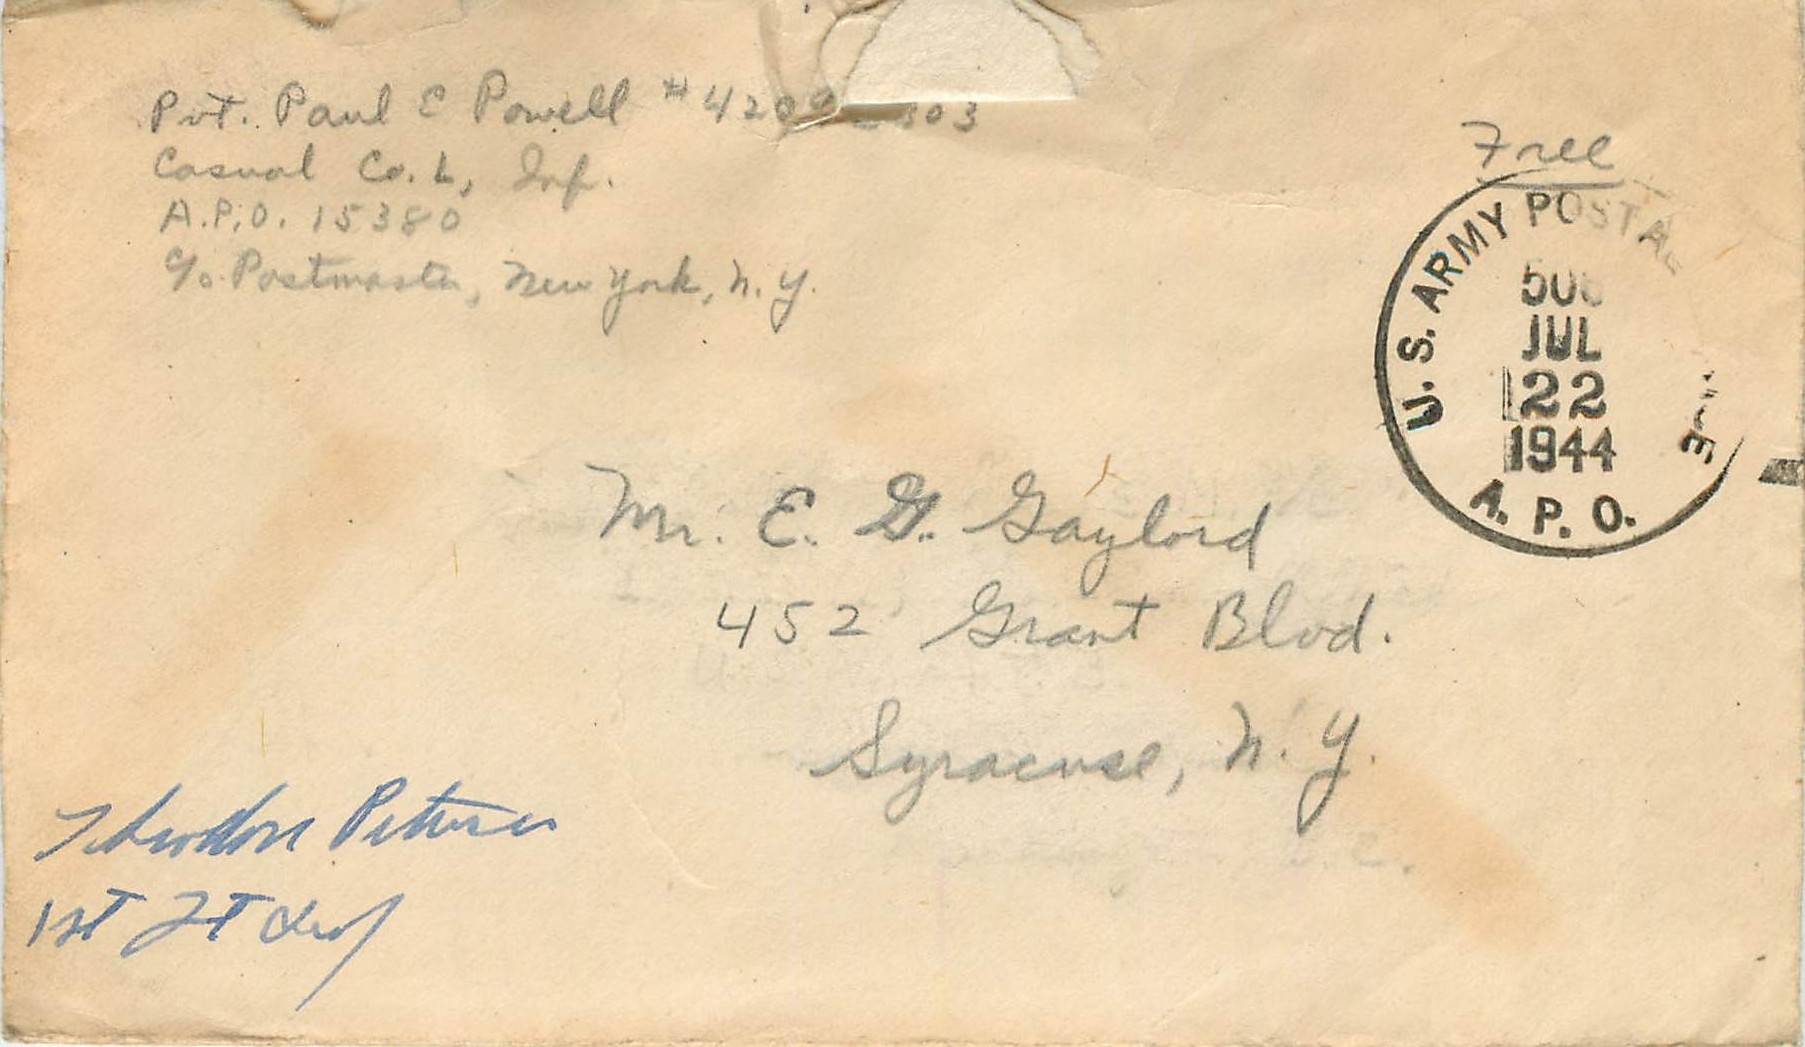 Pvt. Paul E Powell #42
Casual Co. L, Inf.
A.P.O. 15380
c/o Postmaster, New York, N.Y.
Free
U.S. ARMY POSTAL
JUL
22
1944
A.P.O.
Mr. E. G. Gaylord
452 Grant Blvd.
Syracuse, N.Y.
1st Lt Inf